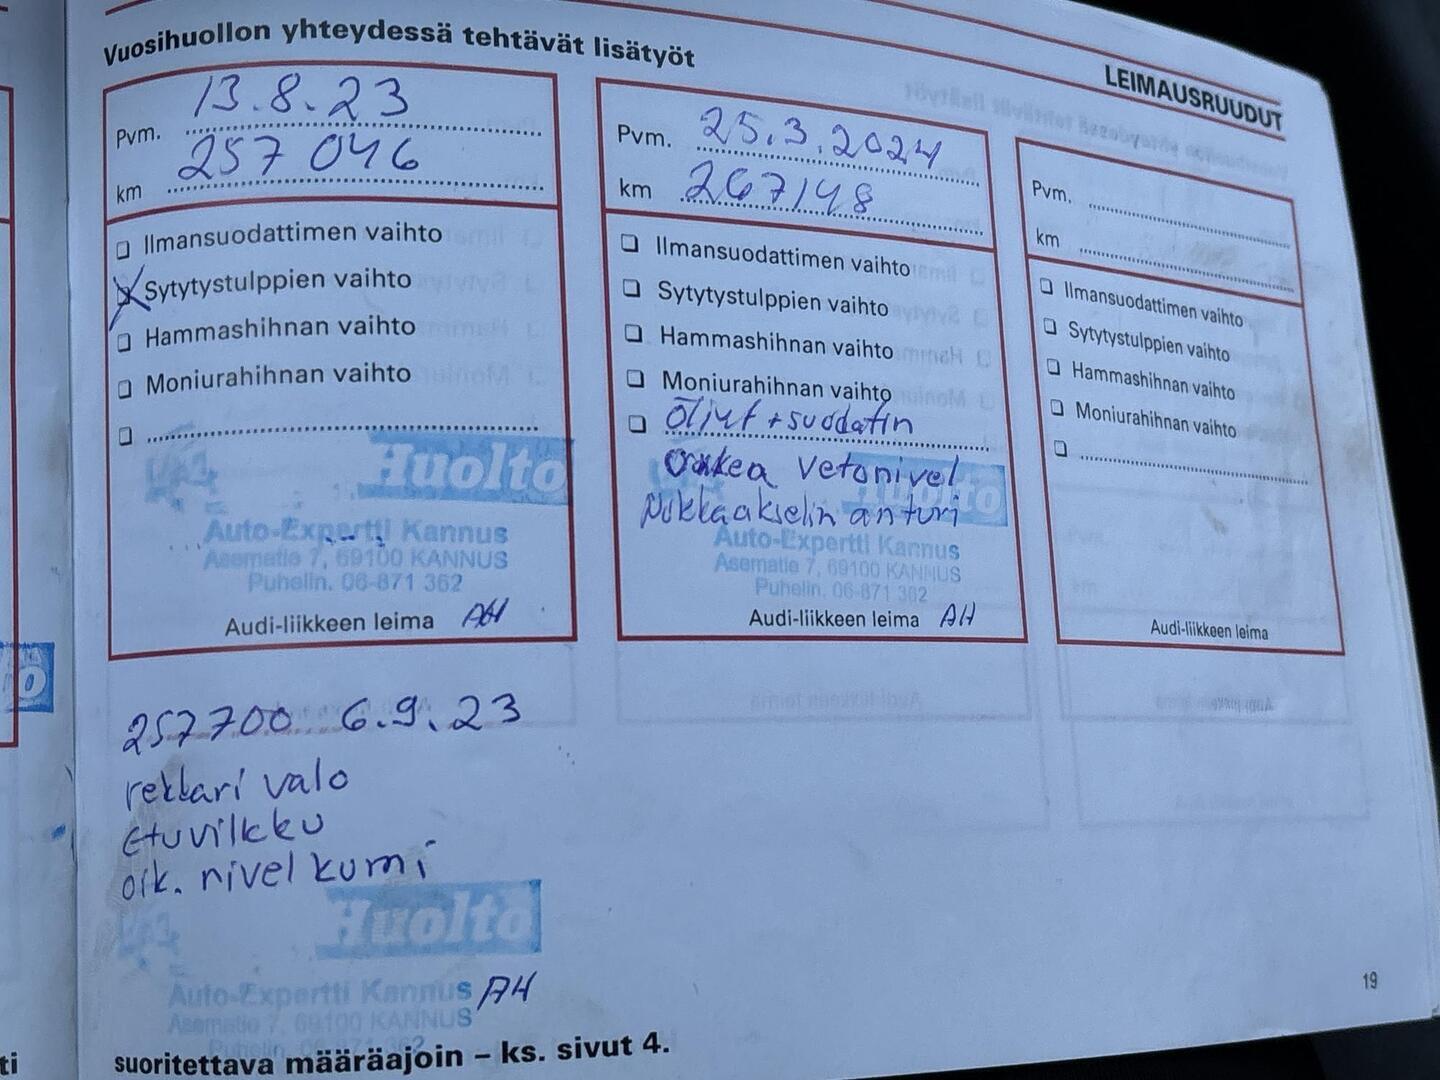 Vuosihuollon yhteydessä tehtävät lisätyöt
LEIMAUSRUUDUT
Pvm. 13.8.23
km 257 046
Ilmansuodattimen vaihto
Sytytystulppien vaihto
Hammashihnan vaihto
Moniurahihnan vaihto
Huolto
Auto-Expertti Kannus
Asematie 7, 69100 KANNUS
Puhelin. 06-871 362
Audi-liikkeen leima AH
Pvm. 25.3.2024
km 267148
Ilmansuodattimen vaihto
Sytytystulppien vaihto
Hammashihnan vaihto
Moniurahihnan vaihto
Öljyt + suodatin
oikea vetonivel
Nokkaakselin anturi
Huolto
Auto-Expertti Kannus
Asematie 7, 69100 KANNUS
Puhelin. 06-871 362
Audi-liikkeen leima AH
Pvm.
km
Ilmansuodattimen vaihto
Sytytystulppien vaihto
Hammashihnan vaihto
Moniurahihnan vaihto
Audi-liikkeen leima
257700 6.9.23
rekkari valo
etuvilkku
oik. nivel kumi
Huolto
Auto-Expertti Kannus AH
Asematie 7, 69100 KANNUS
Puhelin. 06-871 362
suoritettava määräajoin – ks. sivut 4.
19
ti